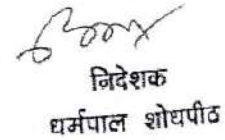 निदेशक
धर्मपाल शोधपीठ